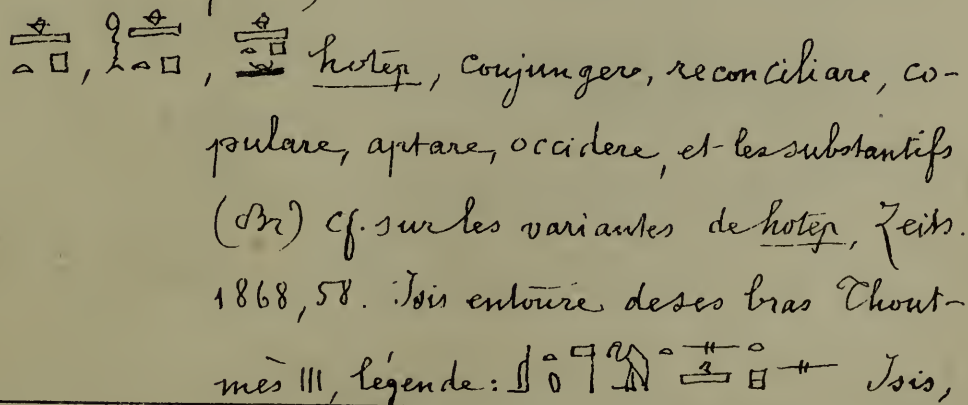 , , hotep, conjungere, reconciliare, co-
pulare, aptare, occidere, et les substantifs
(Br) cf. sur les variantes de hotep, Zeits.
1868, 58. Isis entoure de ses bras Thout-
mès III, légende: Isis,